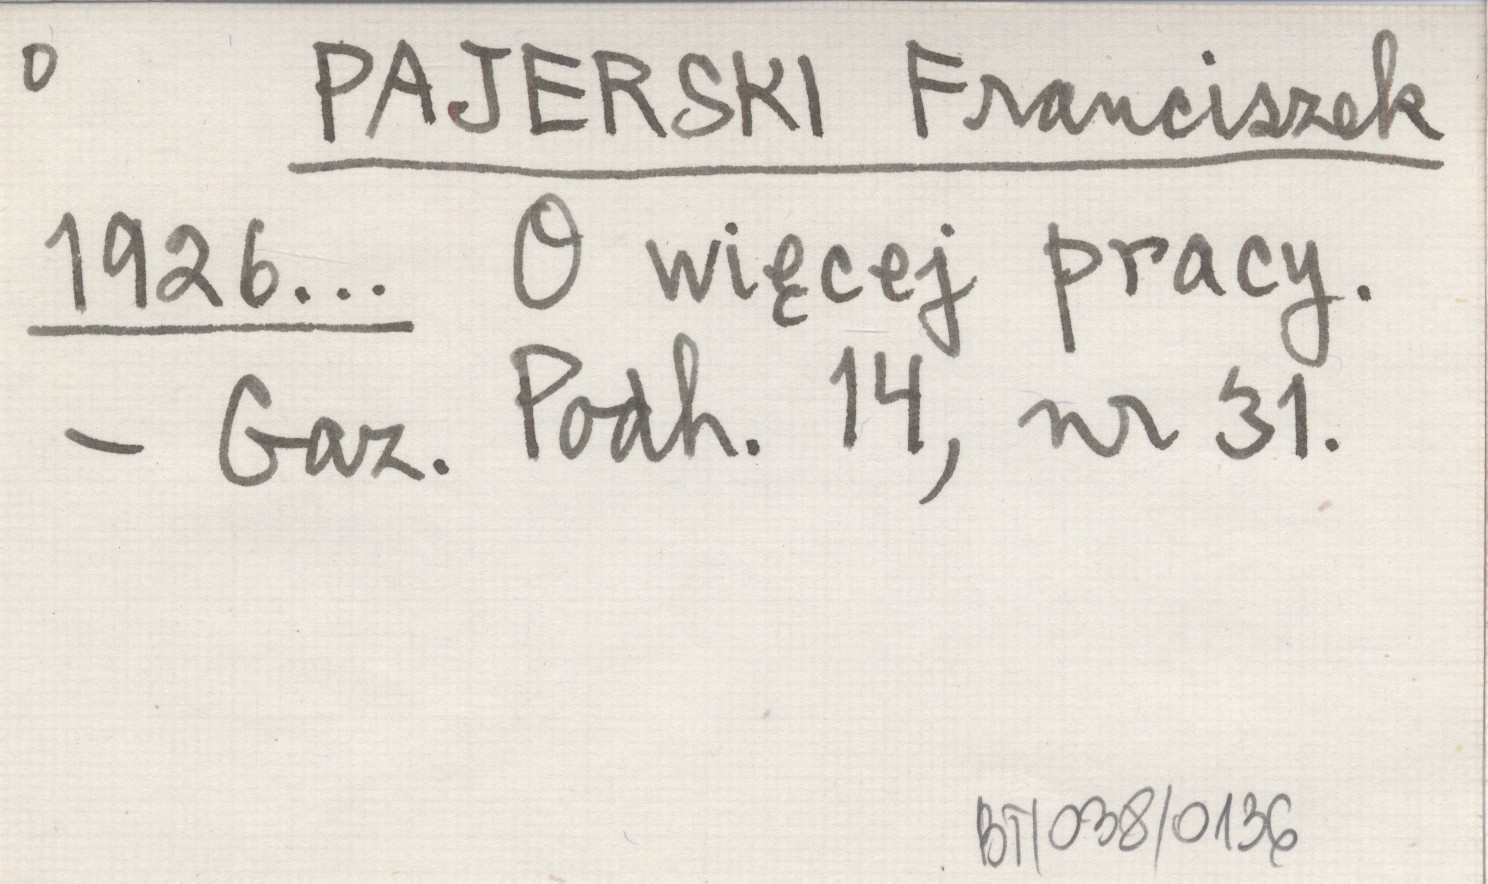 0 PAJERSKI Franciszek
1926... O więcej pracy.
- Gaz. Podh. 14, nr 31.
BT/038/0136